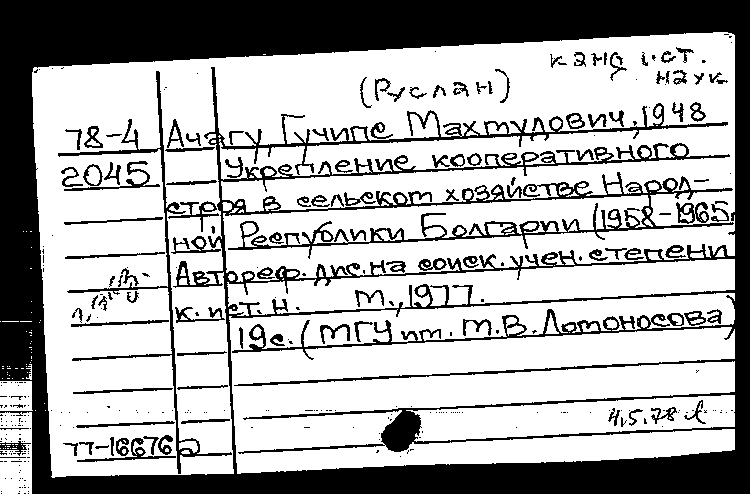 канд. ист. наук
(Руслан)
78-4 Ачагу, Гучипе Махмудович, 1948
2045 Укрепление кооперативного
строя в сельском хозяйстве Народ-
ной Республики Болгарии (1958-1965.
Автореф. дис. на соиск. учен. степени
к. ист. н. М., 1977.
19с. (МГУ им. М.В. Ломоносова)
4.5.78
77-16676